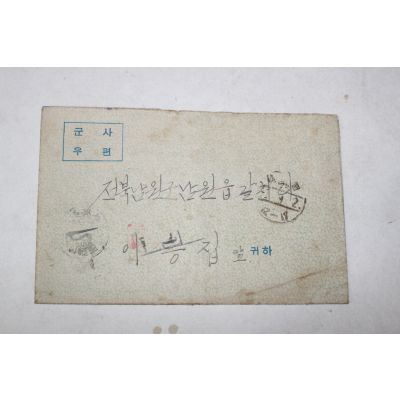 군 사
우 편
전북남원군남원읍갈치리
이 흥 집 앞 귀하